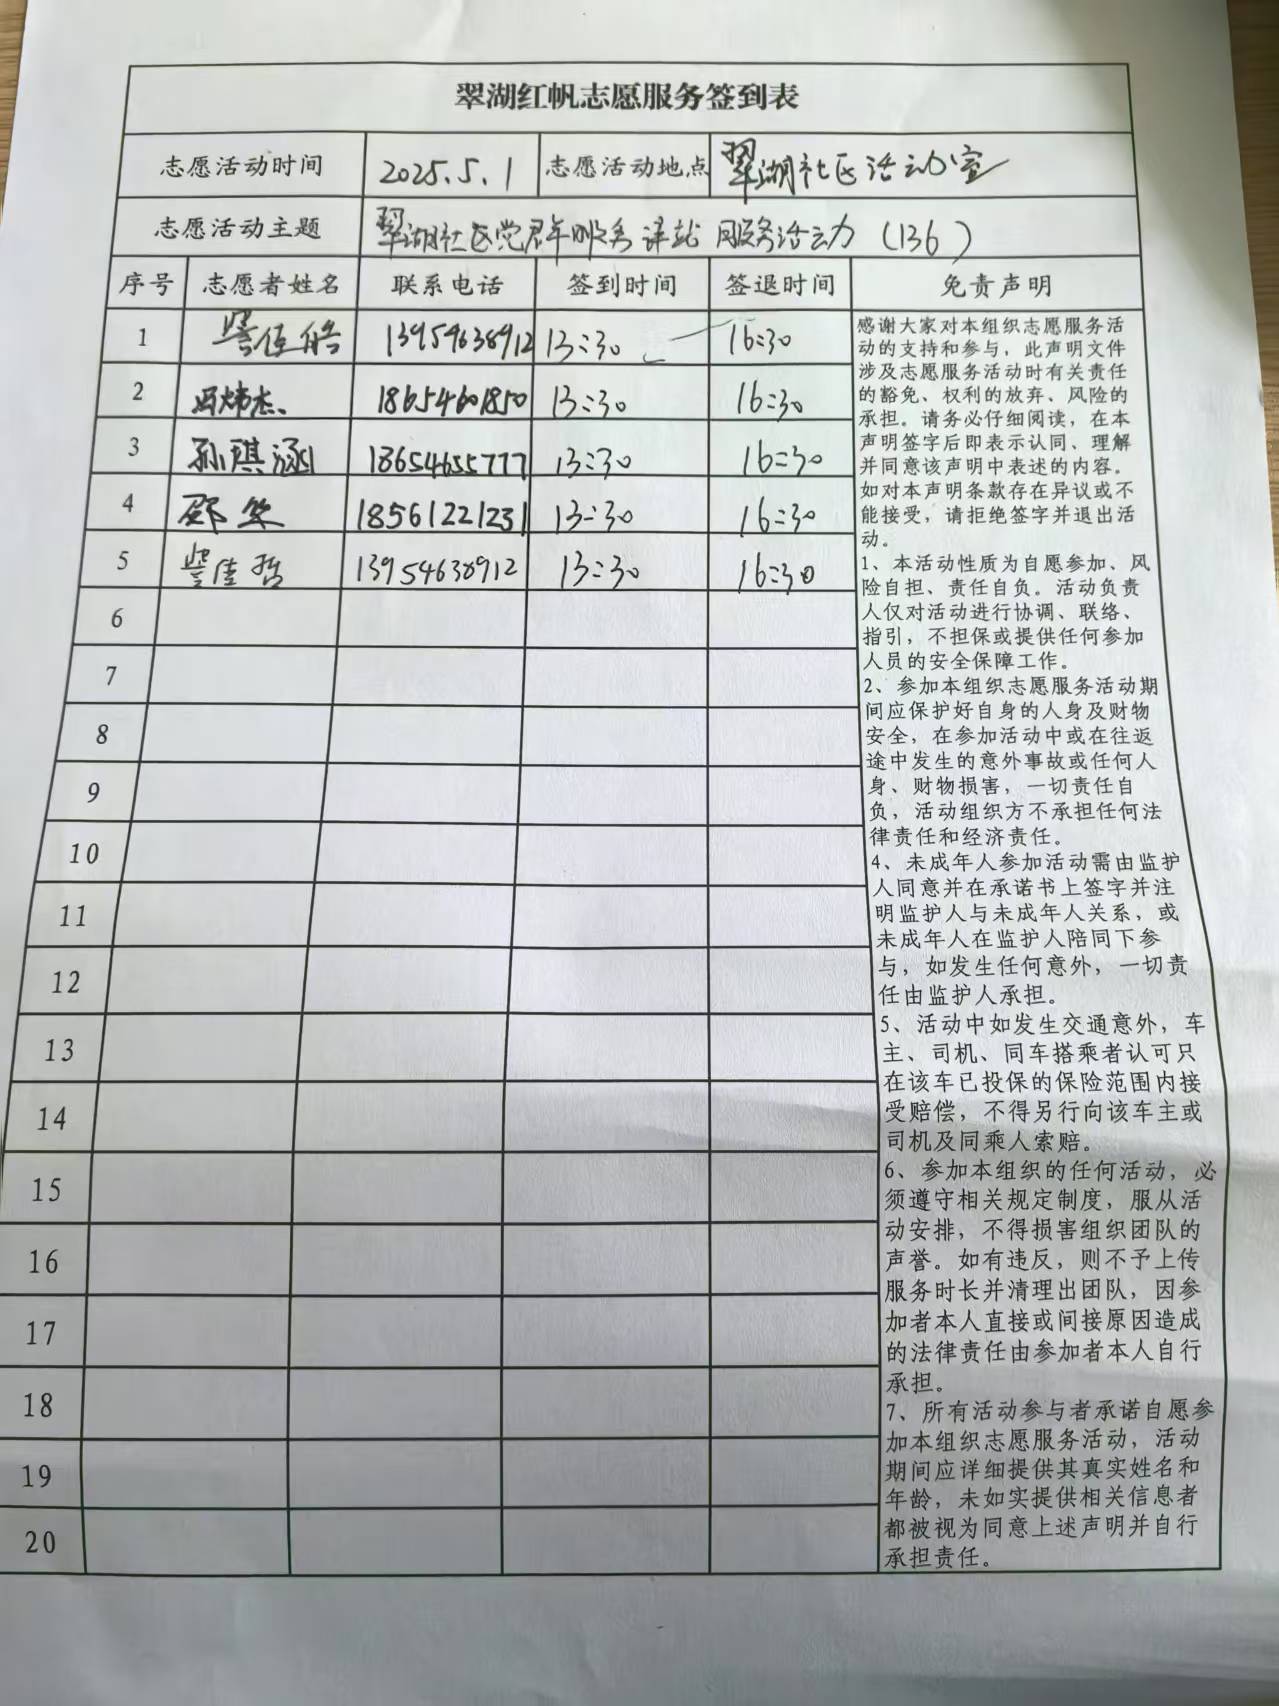 翠湖红帆志愿服务签到表
志愿活动时间 2025.5.1 志愿活动地点 翠湖社区活动室
志愿活动主题 翠湖社区党群服务驿站 服务活动（136）
序号 志愿者姓名 联系电话 签到时间 签退时间 免责声明
1 13954638912 13:30 16:30
2 18654601850 13:30 16:30
3 孙琪涵 18654655777 13:30 16:30
4 18561221231 13:30 16:30
5 13954638912 13:30 16:30
6
7
8
9
10
11
12
13
14
15
16
17
18
19
20
感谢大家对本组织志愿服务活
动的支持和参与，此声明文件
涉及志愿服务活动时有关责任
的豁免、权利的放弃、风险的
承担。请务必仔细阅读，在本
声明签字后即表示认同、理解
并同意该声明中表述的内容。
如对本声明条款存在异议或不
能接受，请拒绝签字并退出活
动。
1、本活动性质为自愿参加、风
险自担、责任自负。活动负责
人仅对活动进行协调、联络、
指引，不担保或提供任何参加
人员的安全保障工作。
2、参加本组织志愿服务活动期
间应保护好自身的人身及财物
安全，在参加活动中或在往返
途中发生的意外事故或任何人
身、财物损害，一切责任自
负，活动组织方不承担任何法
律责任和经济责任。
4、未成年人参加活动需由监护
人同意并在承诺书上签字并注
明监护人与未成年人关系，或
未成年人在监护人陪同下参
与，如发生任何意外，一切责
任由监护人承担。
5、活动中如发生交通意外，车
主、司机、同车搭乘者认可只
在该车已投保的保险范围内接
受赔偿，不得另行向该车主或
司机及同乘人索赔。
6、参加本组织的任何活动，必
须遵守相关规定制度，服从活
动安排，不得损害组织团队的
声誉。如有违反，则不予上传
服务时长并清理出团队，因参
加者本人直接或间接原因造成
的法律责任由参加者本人自行
承担。
7、所有活动参与者承诺自愿参
加本组织志愿服务活动，活动
期间应详细提供其真实姓名和
年龄，未如实提供相关信息者
都被视为同意上述声明并自行
承担责任。